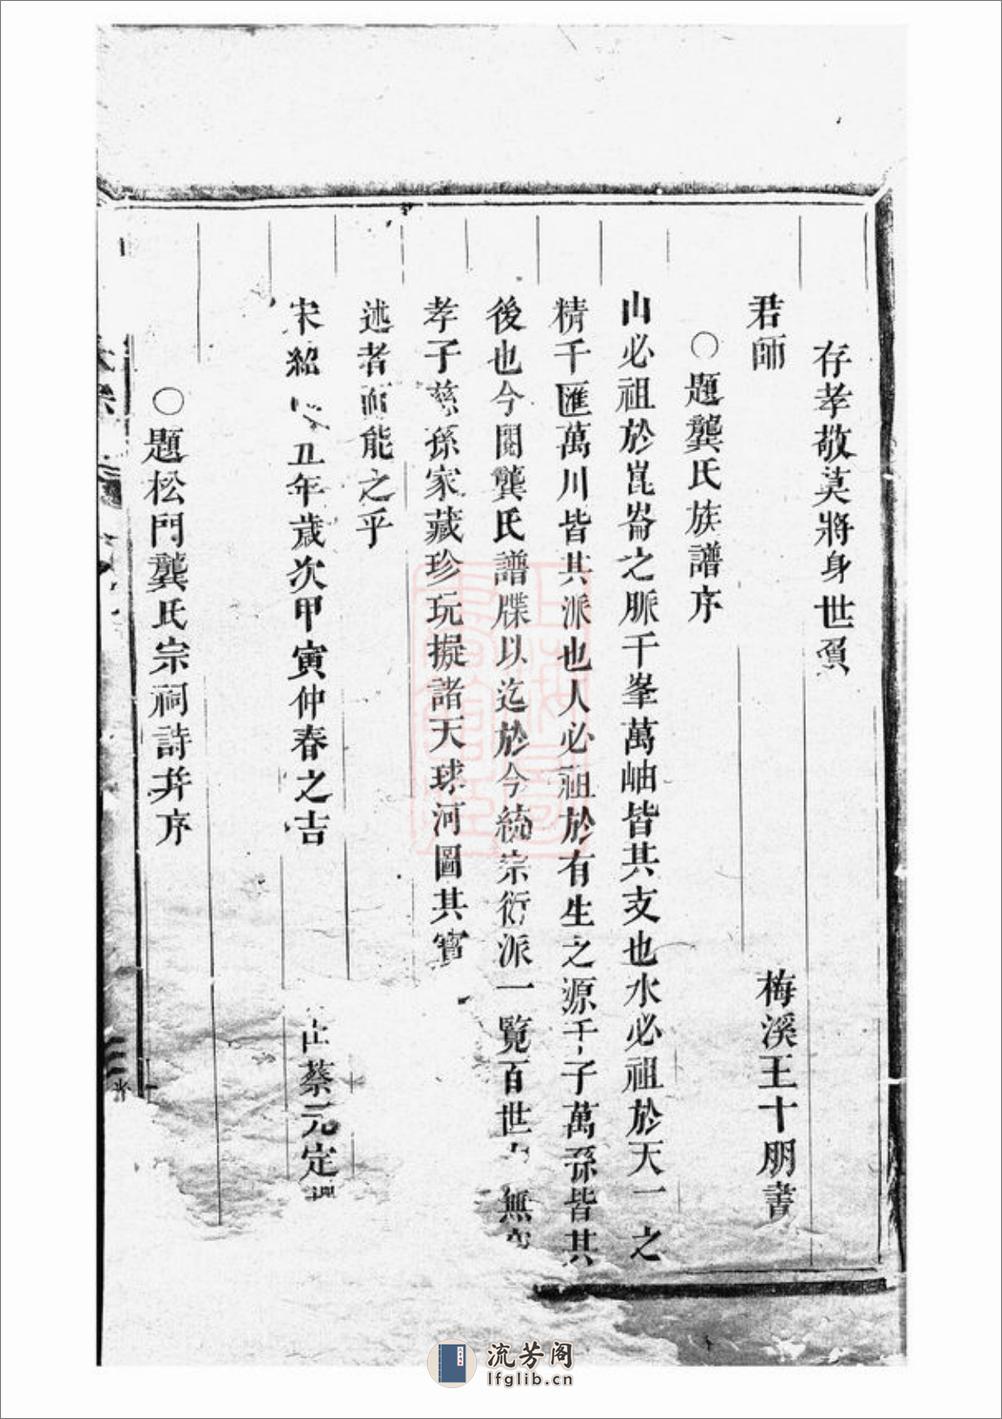 存孝敬莫將身世負
君師
梅溪王十朋書
○題龔氏族譜序
山必祖於崑崙之脈千峯萬岫皆其支也水必祖於天一之
精千匯萬川皆其派也人必祖於有生之源千子萬孫皆其
後也今閱龔氏譜牒以迄於今統宗衍派一覽百世 無
孝子慈孫家藏珍玩擬諸天球河圖其寶
述者而能之乎
宋紹 五年歲次甲寅仲春之吉
蔡元定
○題松門龔氏宗祠詩并序
流芳阁
lfglib.cn